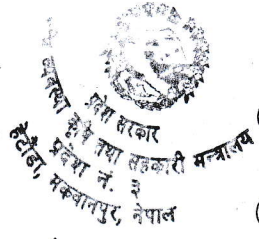 प्रदेश सरकार
व्यवस्था कृषि तथा सहकारी मन्त्रालय
प्रदेश नं. ३
हेटौंडा, मकवानपुर, नेपाल